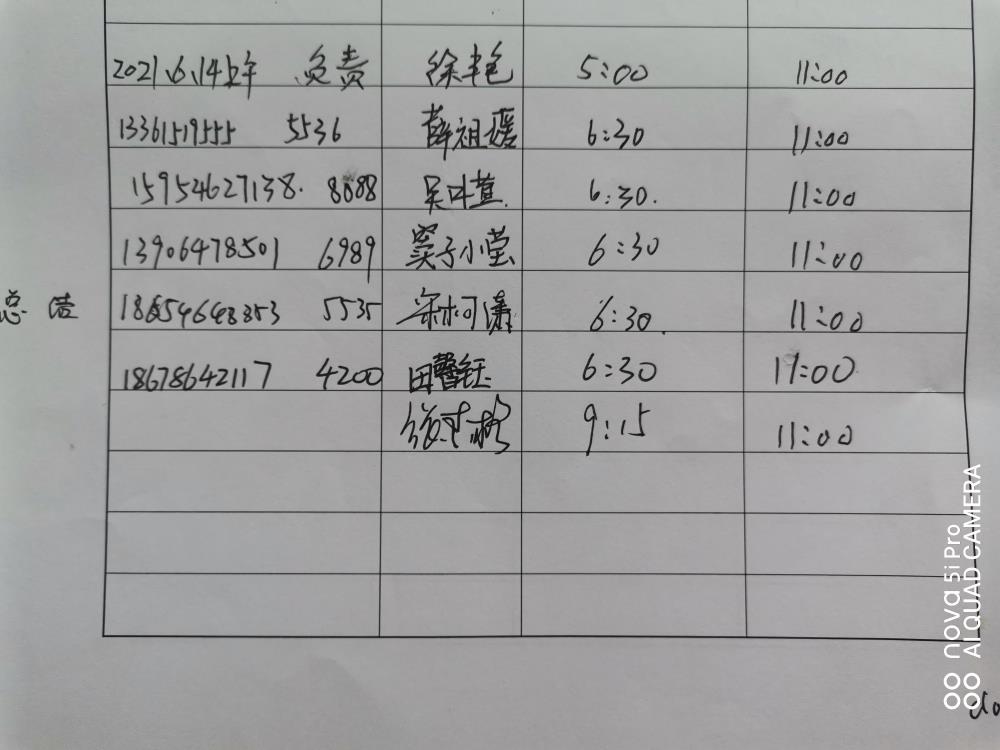 2021.6.14上午 负责 徐丰艳 5:00 11:00
13361519555 5536 薛祖媛 6:30 11:00
15954627138. 8088 吴叶萱. 6:30. 11:00
13906478501 6989 窦子小莹 6:30 11:00
18654648353 5535 宋柯潇 6:30. 11:00
总 结
18678642117 4200 田馨钰 6:30 11:00
9:15 11:00
nova 5i Pro
AI QUAD CAMERA